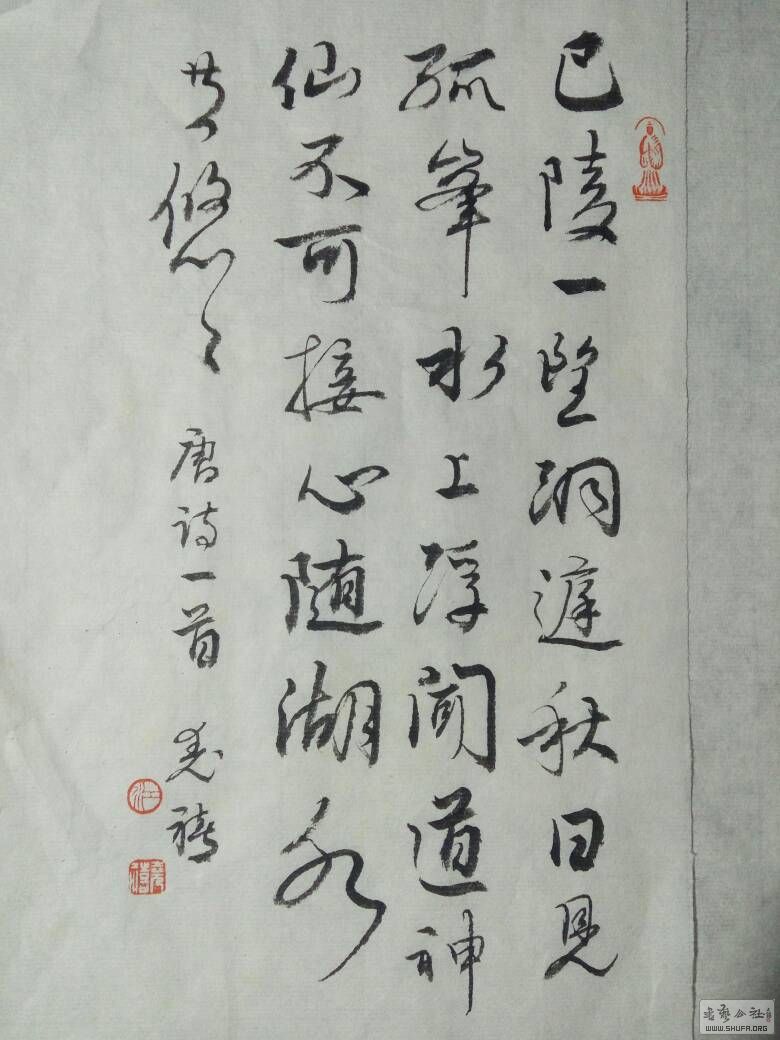 巴陵一望洞庭秋日見
孤峯水上浮闻道神
仙不可接心随湖水
共悠々
唐诗一首
书艺公社
WWW.SHUFA.ORG